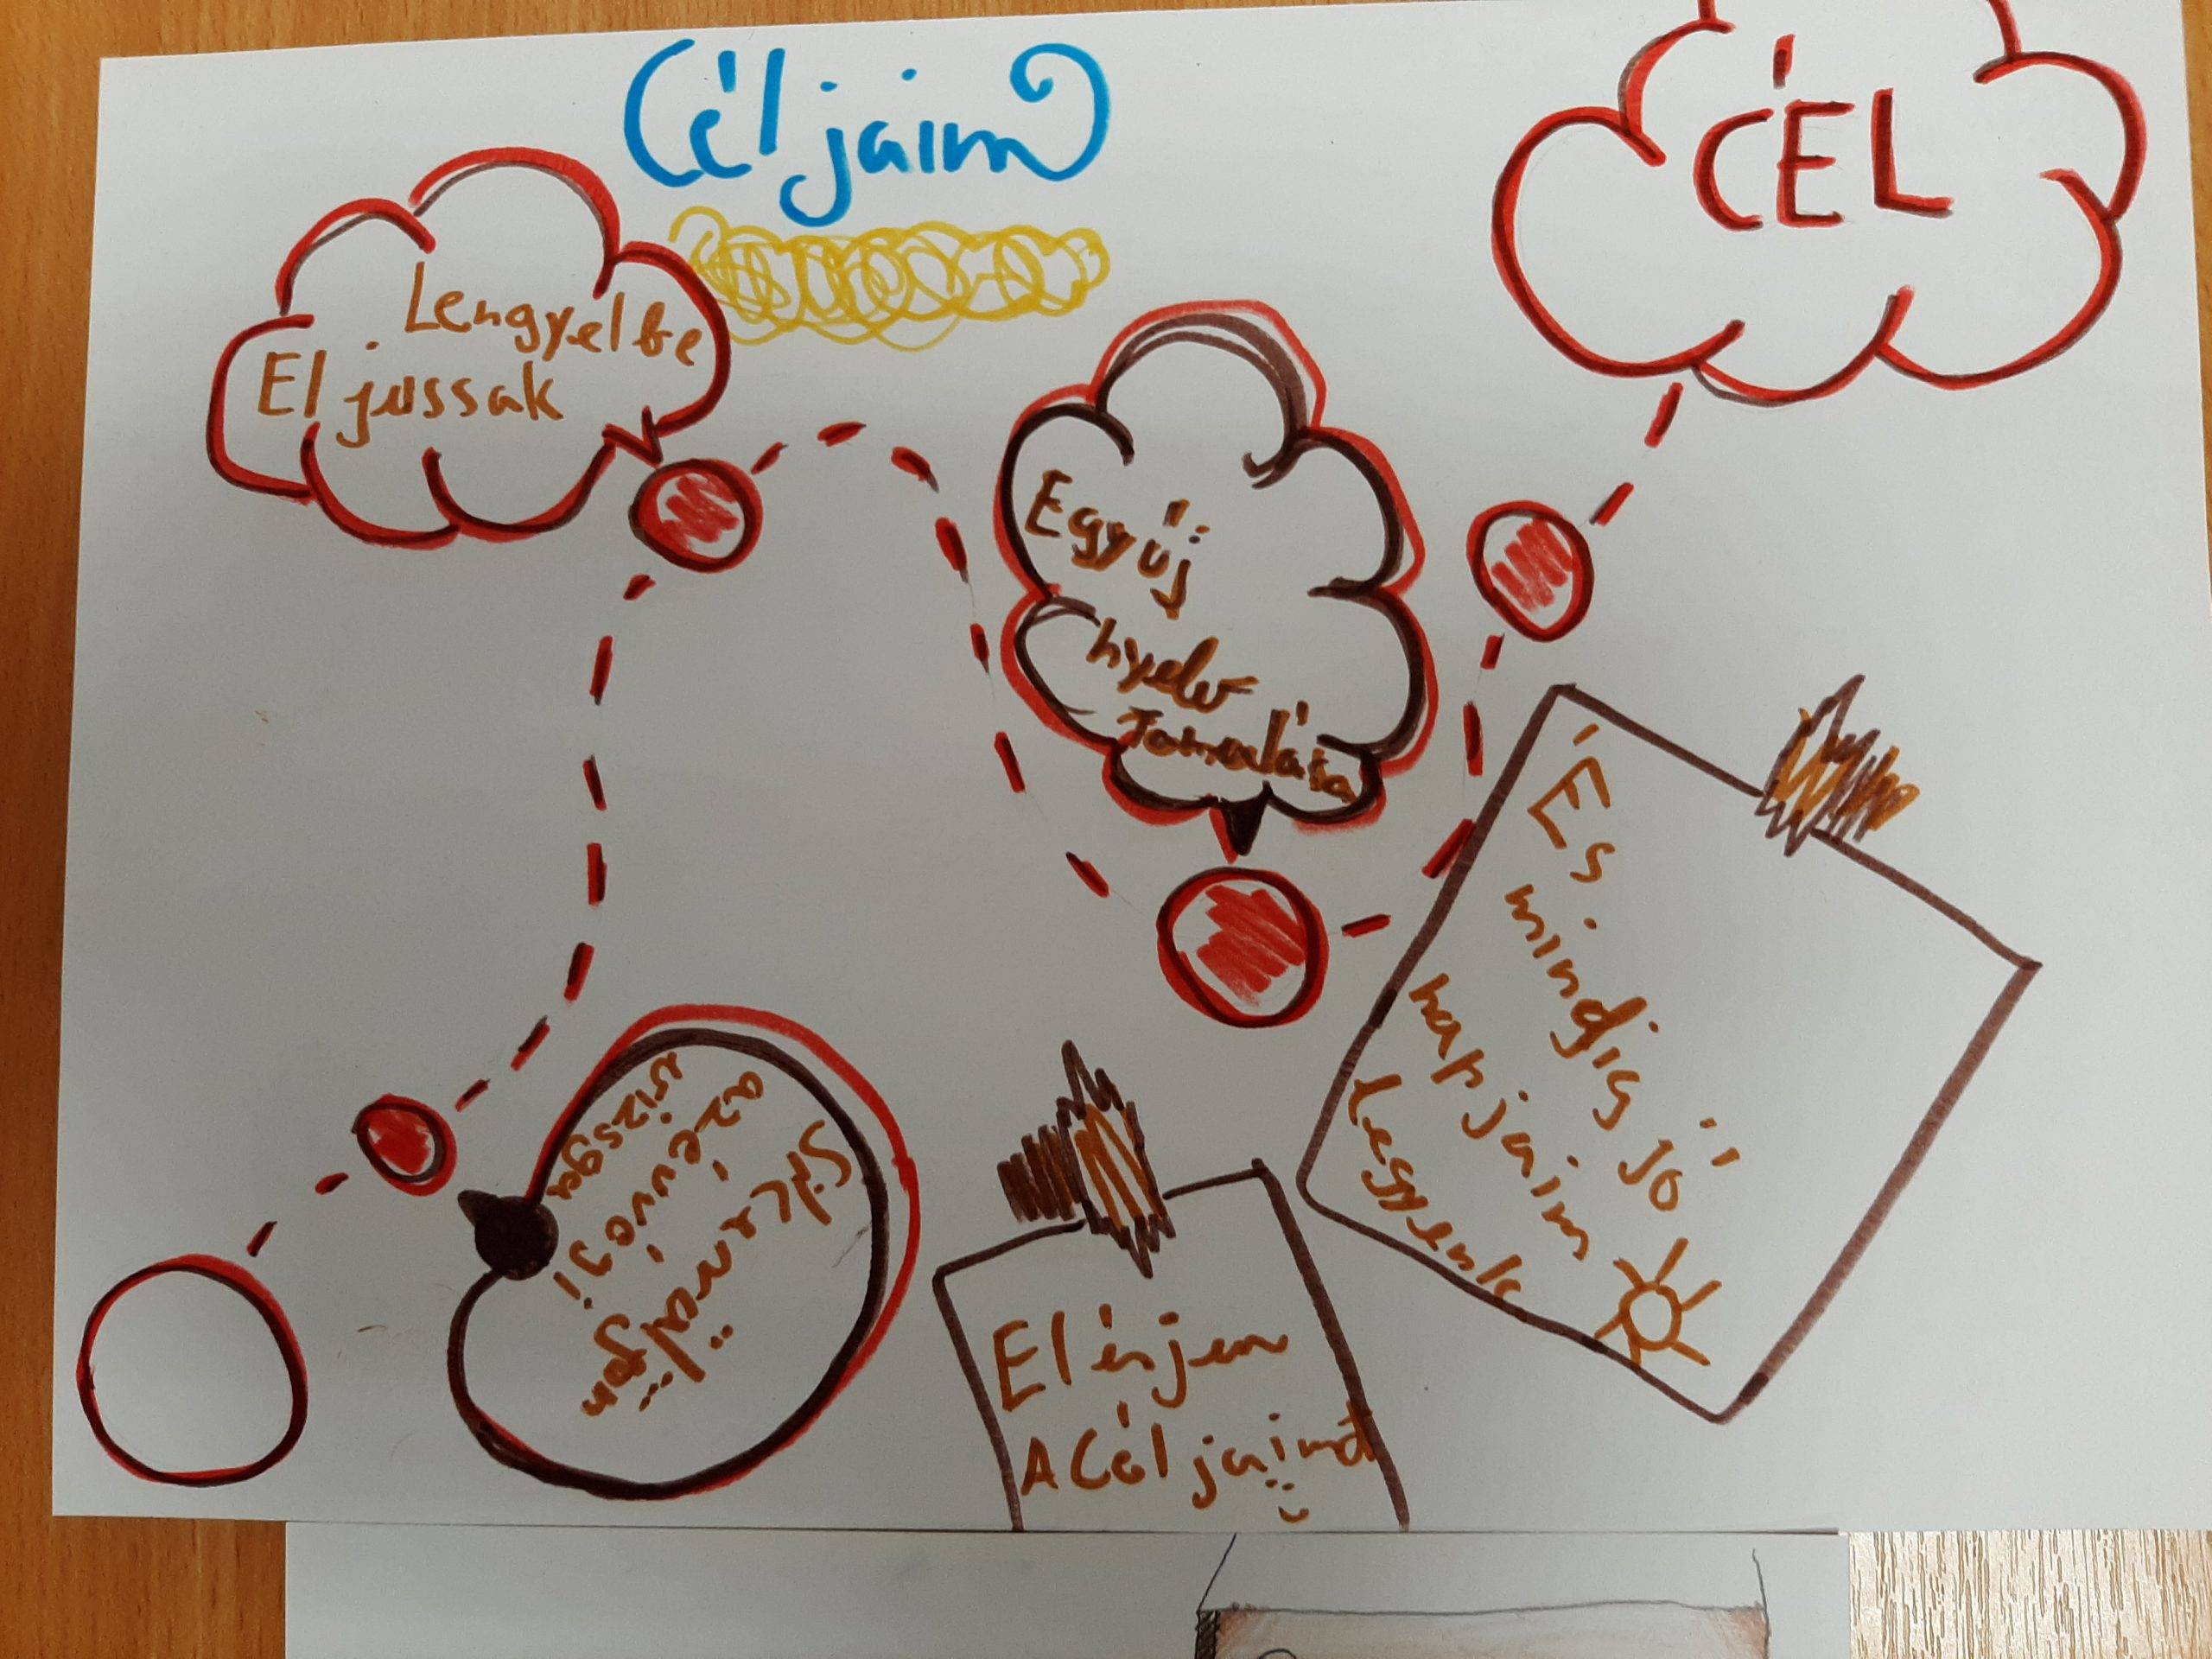 Céljaim
CÉL
Lengyelbe
El jussak
Egy új
nyelv
Tanulása
Sikerüljön
az évvégi
vizsga
És
mindig jó
napjaim
legyenek
Elérjem
A Céljaimat